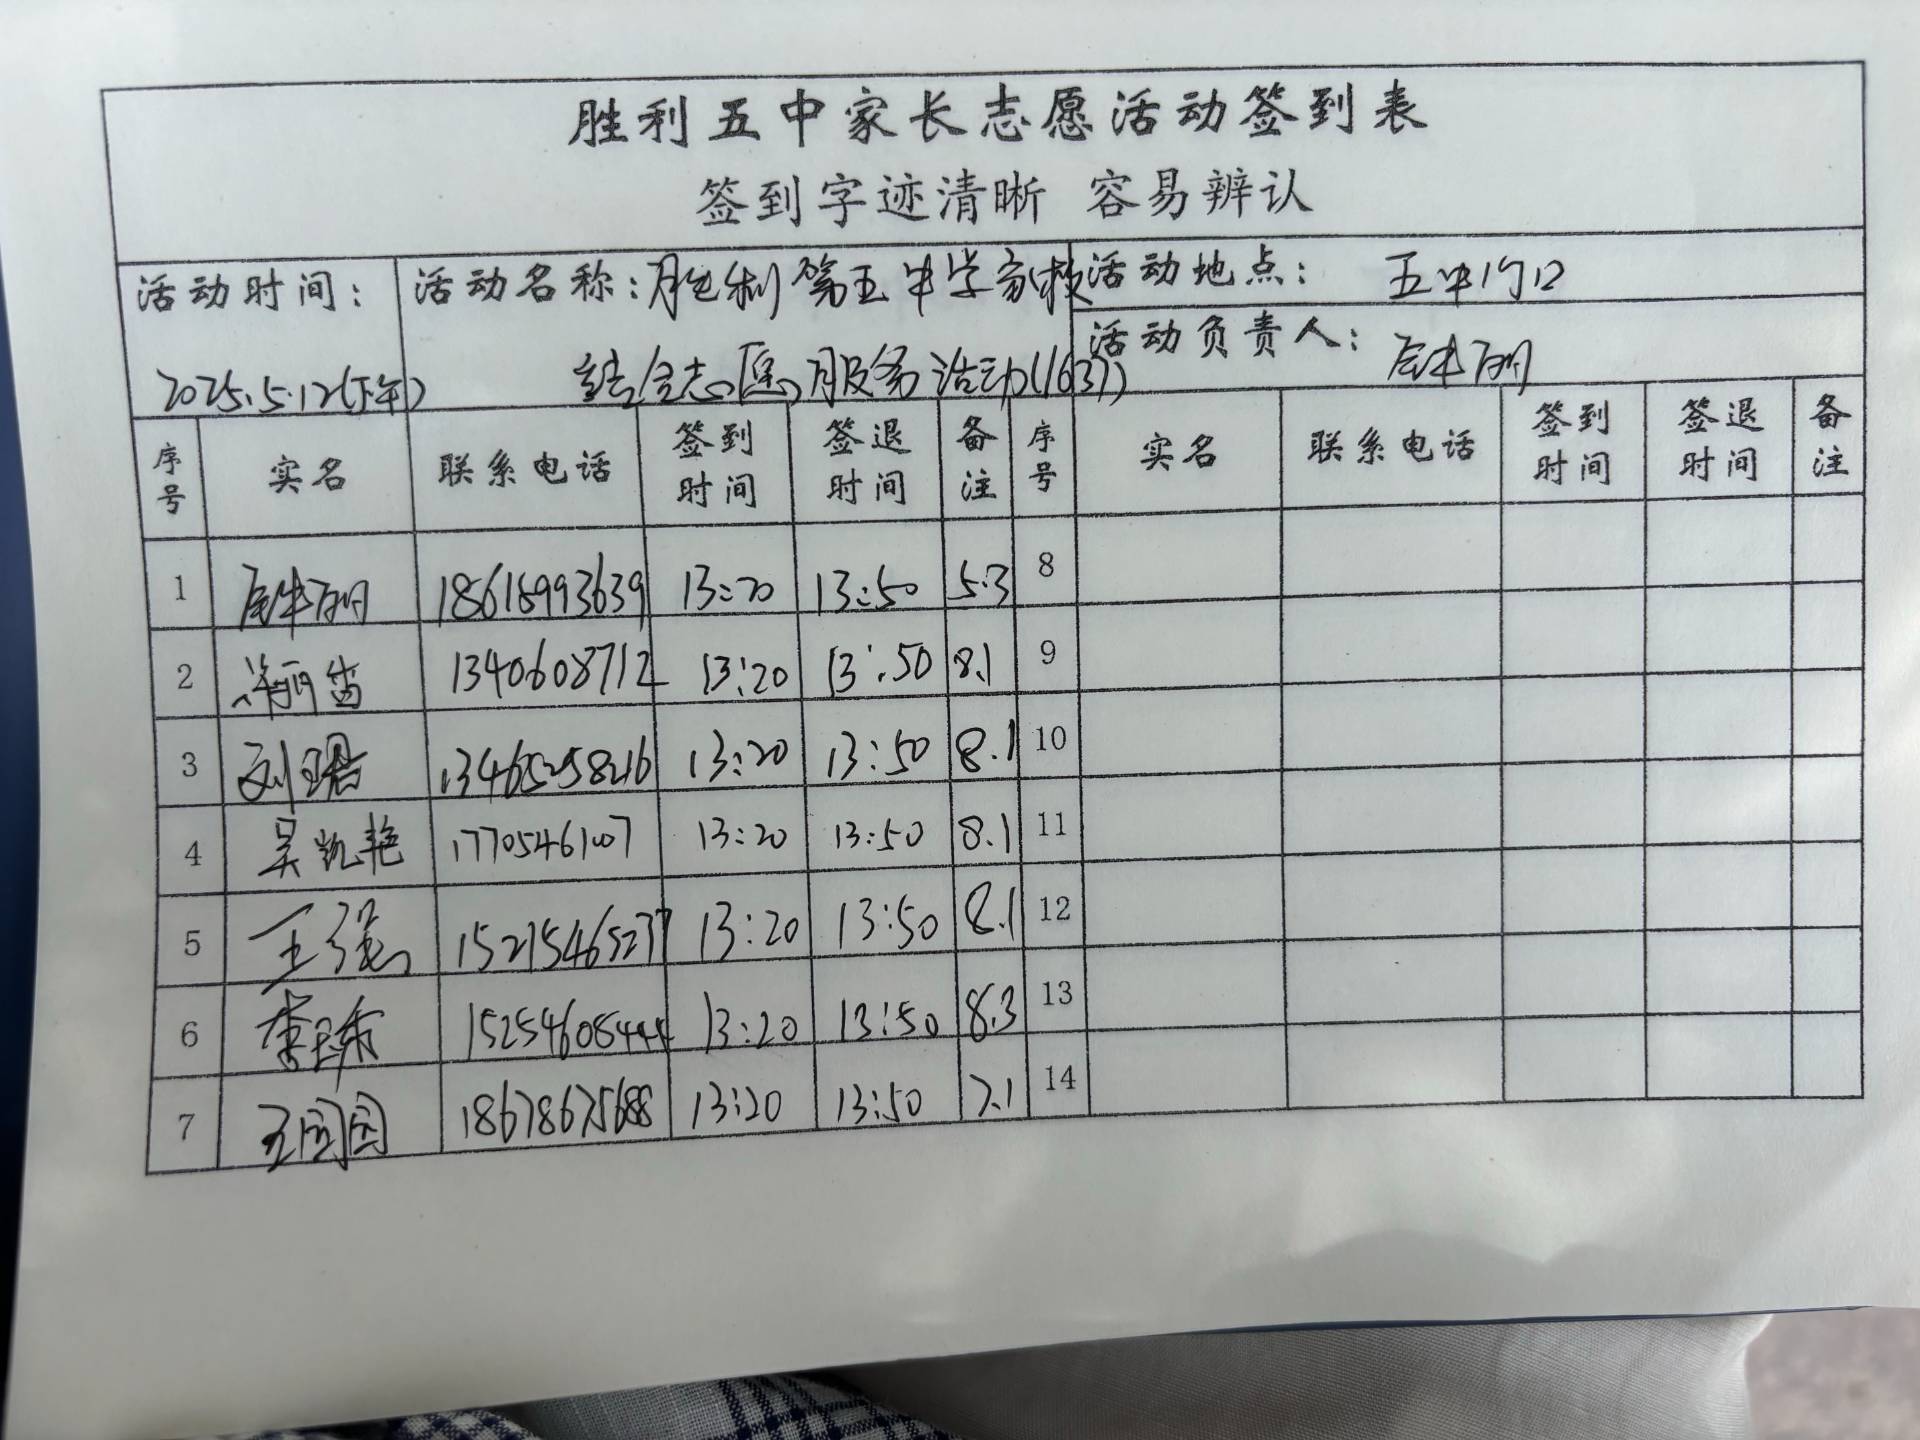 胜利五中家长志愿活动签到表
签到字迹清晰 容易辨认
活动时间： 活动名称：胜利第五中学家校 活动地点： 五中门口
2025.5.12(下午) 结合志愿服务活动(1637) 活动负责人：
序号 实名 联系电话 签到时间 签退时间 备注 序号 实名 联系电话 签到时间 签退时间 备注
1 18615993639 13:20 13:50 5.3 8
2 1340608712 13:20 13:50 8.1 9
3 刘珺 13465258216 13:20 13:50 8.1 10
4 吴凯艳 13:20 13:50 8.1 11
5 王强 15215465237 13:20 13:50 8.1 12
6 李玮 15254608444 13:20 13:50 8.3 13
7 王园园 18678675688 13:20 13:50 7.1 14